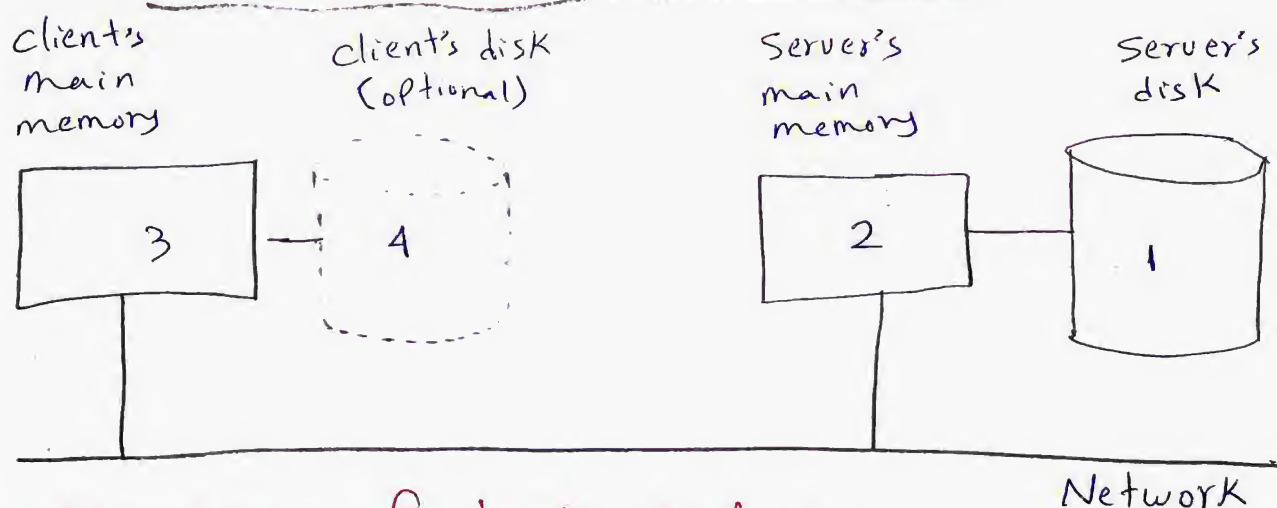 Client's
main
memory
client's disk
(optional)
Server's
main
memory
Server's
disk
3
4
2
1
Network